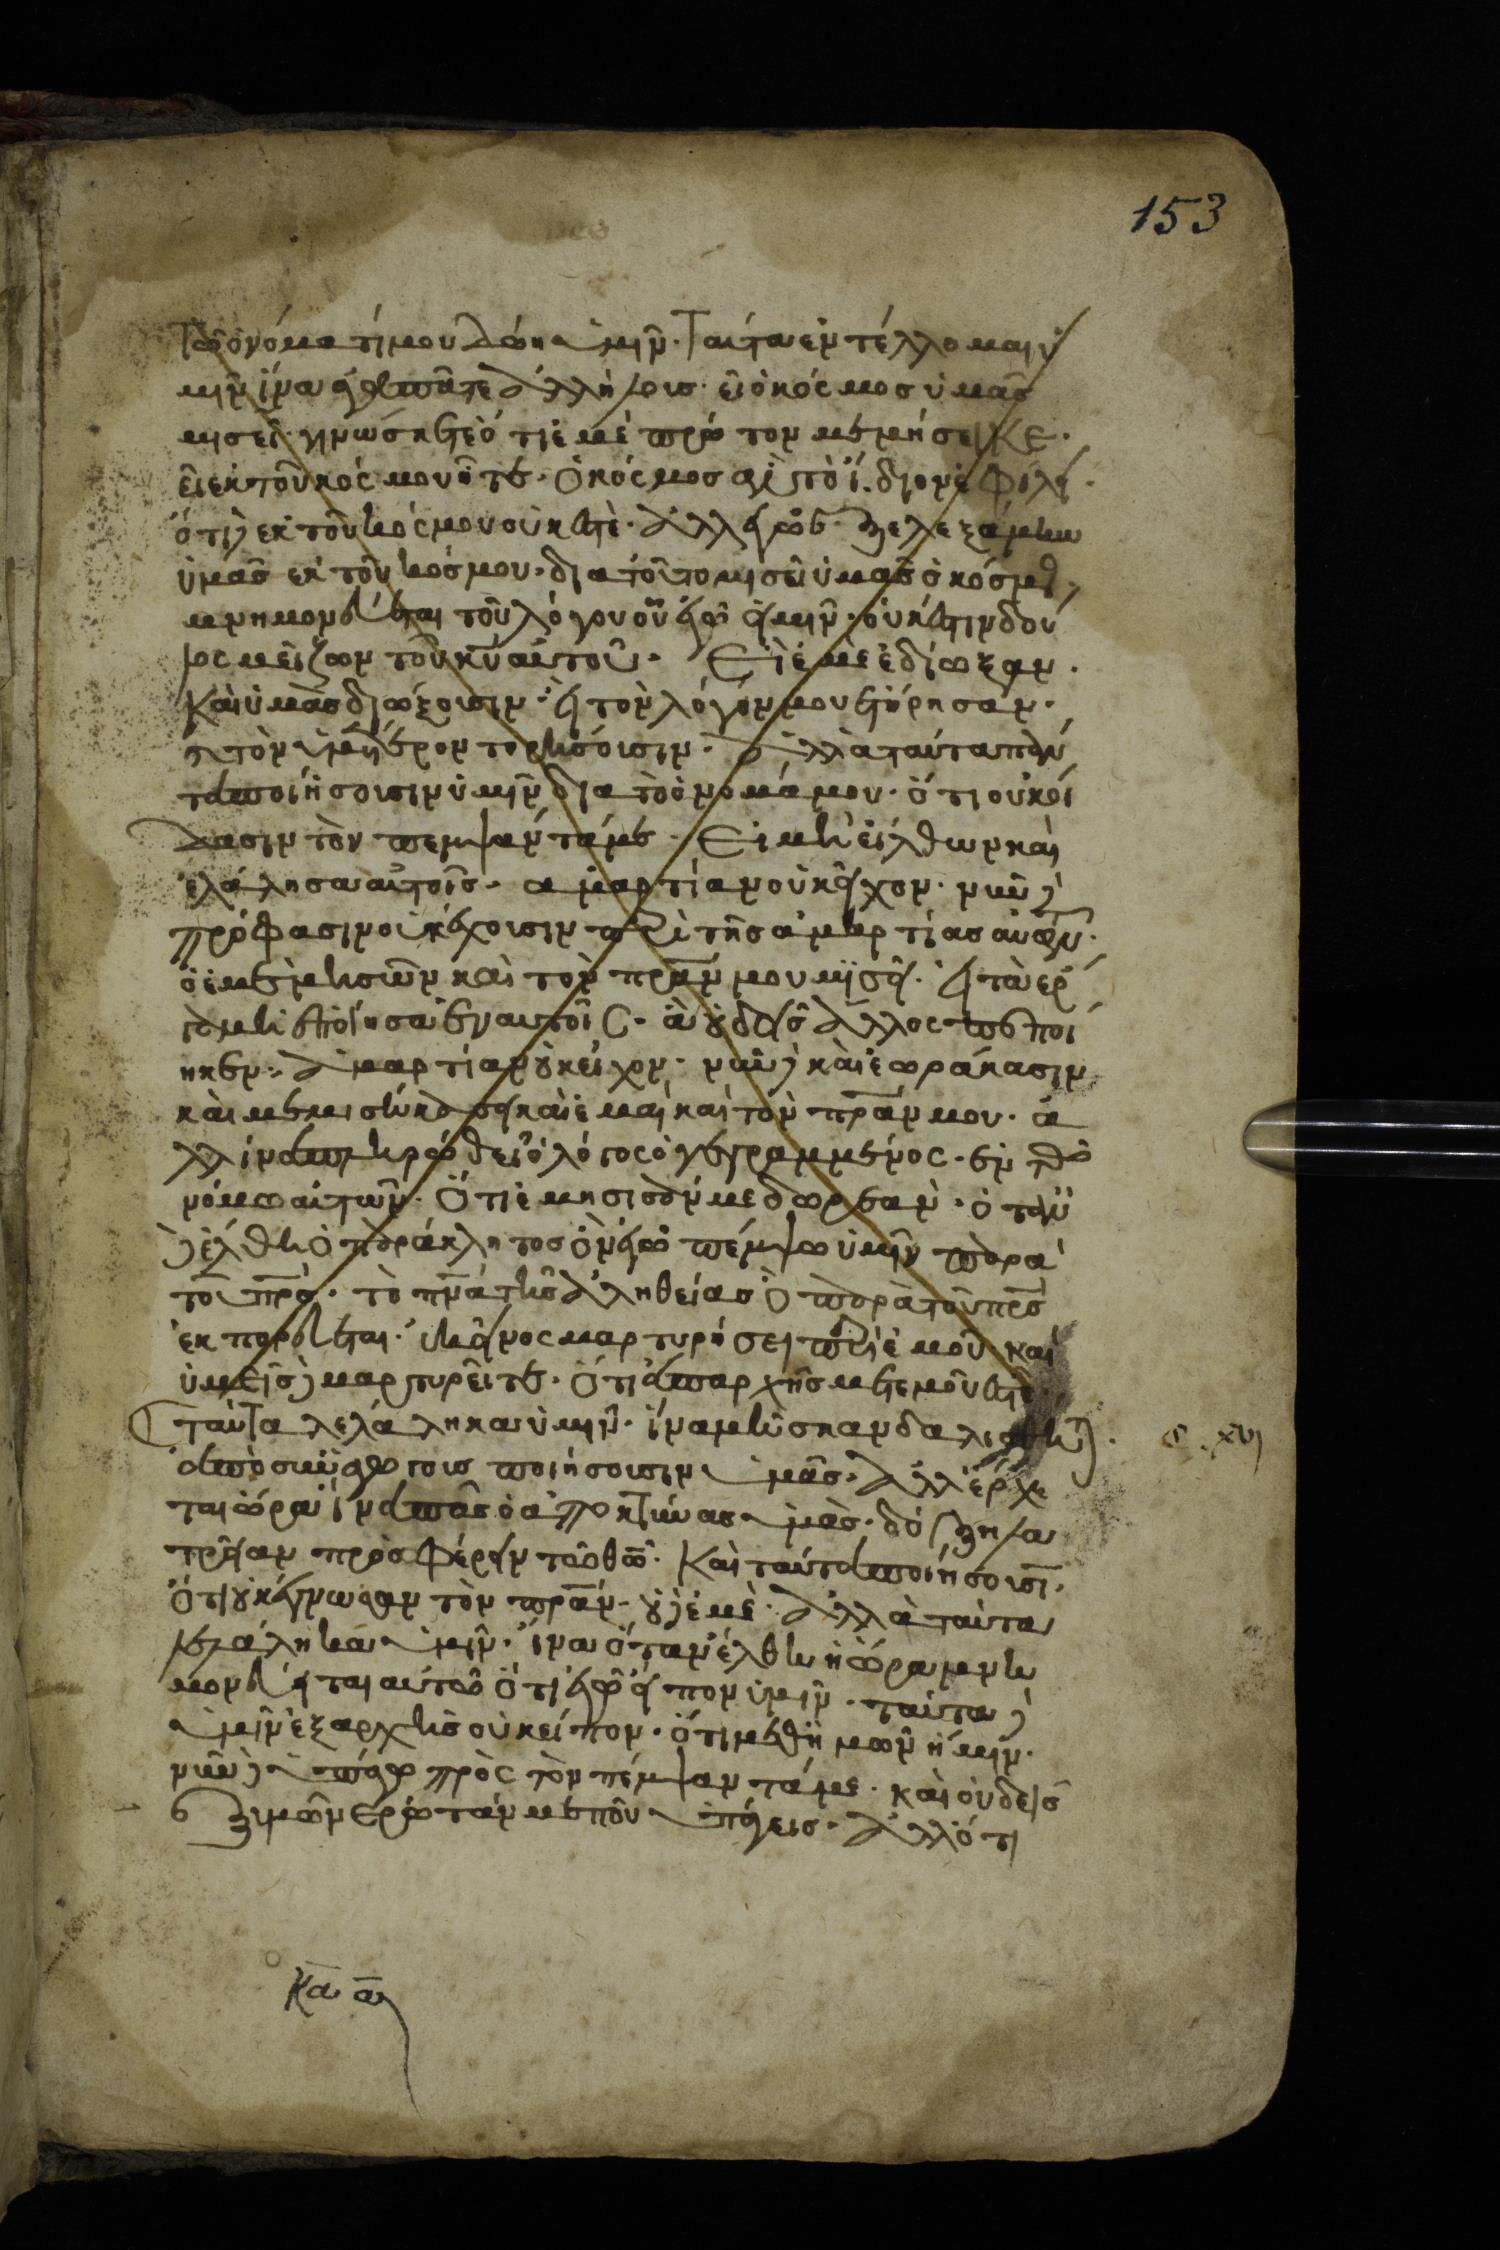 153
τῶ ὀνόματί μου δώη ὑμῖν. Ταῦτα ἐντέλλομαι ὑ
μῖν ἵνα ἀγαπᾶτε ἀλλήλοις. εἰ ὁ κόσμος ὑμᾶς
μισεῖ. γινώσκετε ὅτι ἐμὲ πρῶτον μεμήσεικε.
εἰ ἐκ τοῦ κόσμου ἦτε. ὁ κόσμος ἂν τὸ ἴδιον ἐφίλει.
ὅτι δὲ ἐκ τοῦ κόσμου οὐκ ἐστὲ. ἀλλ' ἐγὼ ἐξελεξάμην
ὑμᾶς ἐκ τοῦ κόσμου. διὰ τοῦτο μισεῖ ὑμᾶς ὁ κόσμος.
μνημονεύεται τοῦ λόγου οὗ ἐγὼ εἶπον ὑμῖν. οὐκ ἔστιν δοῦ
λος μείζων τοῦ κυ αὐτοῦ. Εἰ ἐμὲ ἐδίωξαν.
καὶ ὑμᾶς διώξουσιν. εἰ τὸν λόγον μου ἐτήρησαν.
καὶ τὸν ὑμέτερον τηρήσουσιν. ἀλλὰ ταῦτα πάν
τα ποιήσουσιν ὑμῖν διὰ τὸ ὄνομά μου. ὅτι οὐκ οἴ
δασιν τὸν πέμψαντά με. Εἰ μὴ εἶλθων καὶ
ἐλάλησα αὐτοῖς. ἁμαρτίαν οὐκ εἶχον. νῦν δὲ
πρόφασιν οὐκ ἔχουσιν περὶ τῆς ἁμαρτίας αὐτῶν.
ὁ ἐμὲ μισῶν καὶ τὸν πραν μου μισεῖ. εἰ τὰ ἔρ
γα μὴ ἐποίησα ἐν αὐτοῖς. ἃ οὐδεὶς ἄλλος πεποί
ηκεν. ἁμαρτίαν οὐκ εἶχον. νῦν δὲ καὶ ἑωράκασιν
καὶ μεμισήκασι καὶ ἐμαὶ καὶ τὸν πραν μου. ἀ
λλ' ἵνα πληρωθεῖ ὁ λόγος ὁ γεγραμμένος. ἐν τῶ
νόμω αὐτῶν. ὅτι ἐμησισάν με δωρεαν. ὅταν
δὲ ἔλθη ὁ παράκλητος ὃν ἐγὼ πέμψω ὑμῖν παρὰ
τοῦ πρσ. τὸ πνα τῆς ἀληθείας ὃ παρὰ τοῦ πρσ
ἐκπορεύεται. ἐκεῖνος μαρτυρήσει περὶ ἐμοῦ. καὶ
ὑμεῖς δὲ μαρτυρεῖτε. ὅτι ἀπαρχῆς μετ' ἐμοῦ ἐστὲ
ταῦτα λελάληκα ὑμῖν. ἵνα μὴ σκανδαλισθῆτε. C. XVI
ἀποσυναγώγους ποιήσουσιν ὑμᾶς. ἀλλ' ἔρχε
ται ὥρα ἵνα πᾶς ὁ ἀποκτείνας ὑμᾶς. δόξη λα
τρείαν προσφέρειν τῶ θῶ. καὶ ταῦτα ποιήσουσι.
ὅτι οὐκ ἔγνωσαν τὸν πραν. οὐδὲ ἐμὲ. ἀλλὰ ταῦτα
λελάληκα ὑμῖν. ἵνα ὅταν ἔλθη ἡ ὥρα μνη
μονεύηται αὐτῶ ὅτι ἐγὼ εἶπον ὑμῖν. ταῦτα δὲ
ὑμῖν ἐξ ἀρχῆς οὐκ εἶπον. ὅτι μεθ' ἡμῶν ἤμην.
νῦν δὲ ὑπάγω πρὸς τὸν πέμψαντά με. καὶ οὐδεὶς
ἐξ ἡμῶν ἐρωτᾶ με ποῦ ὑπάγεις. ἀλλ' ὅτι